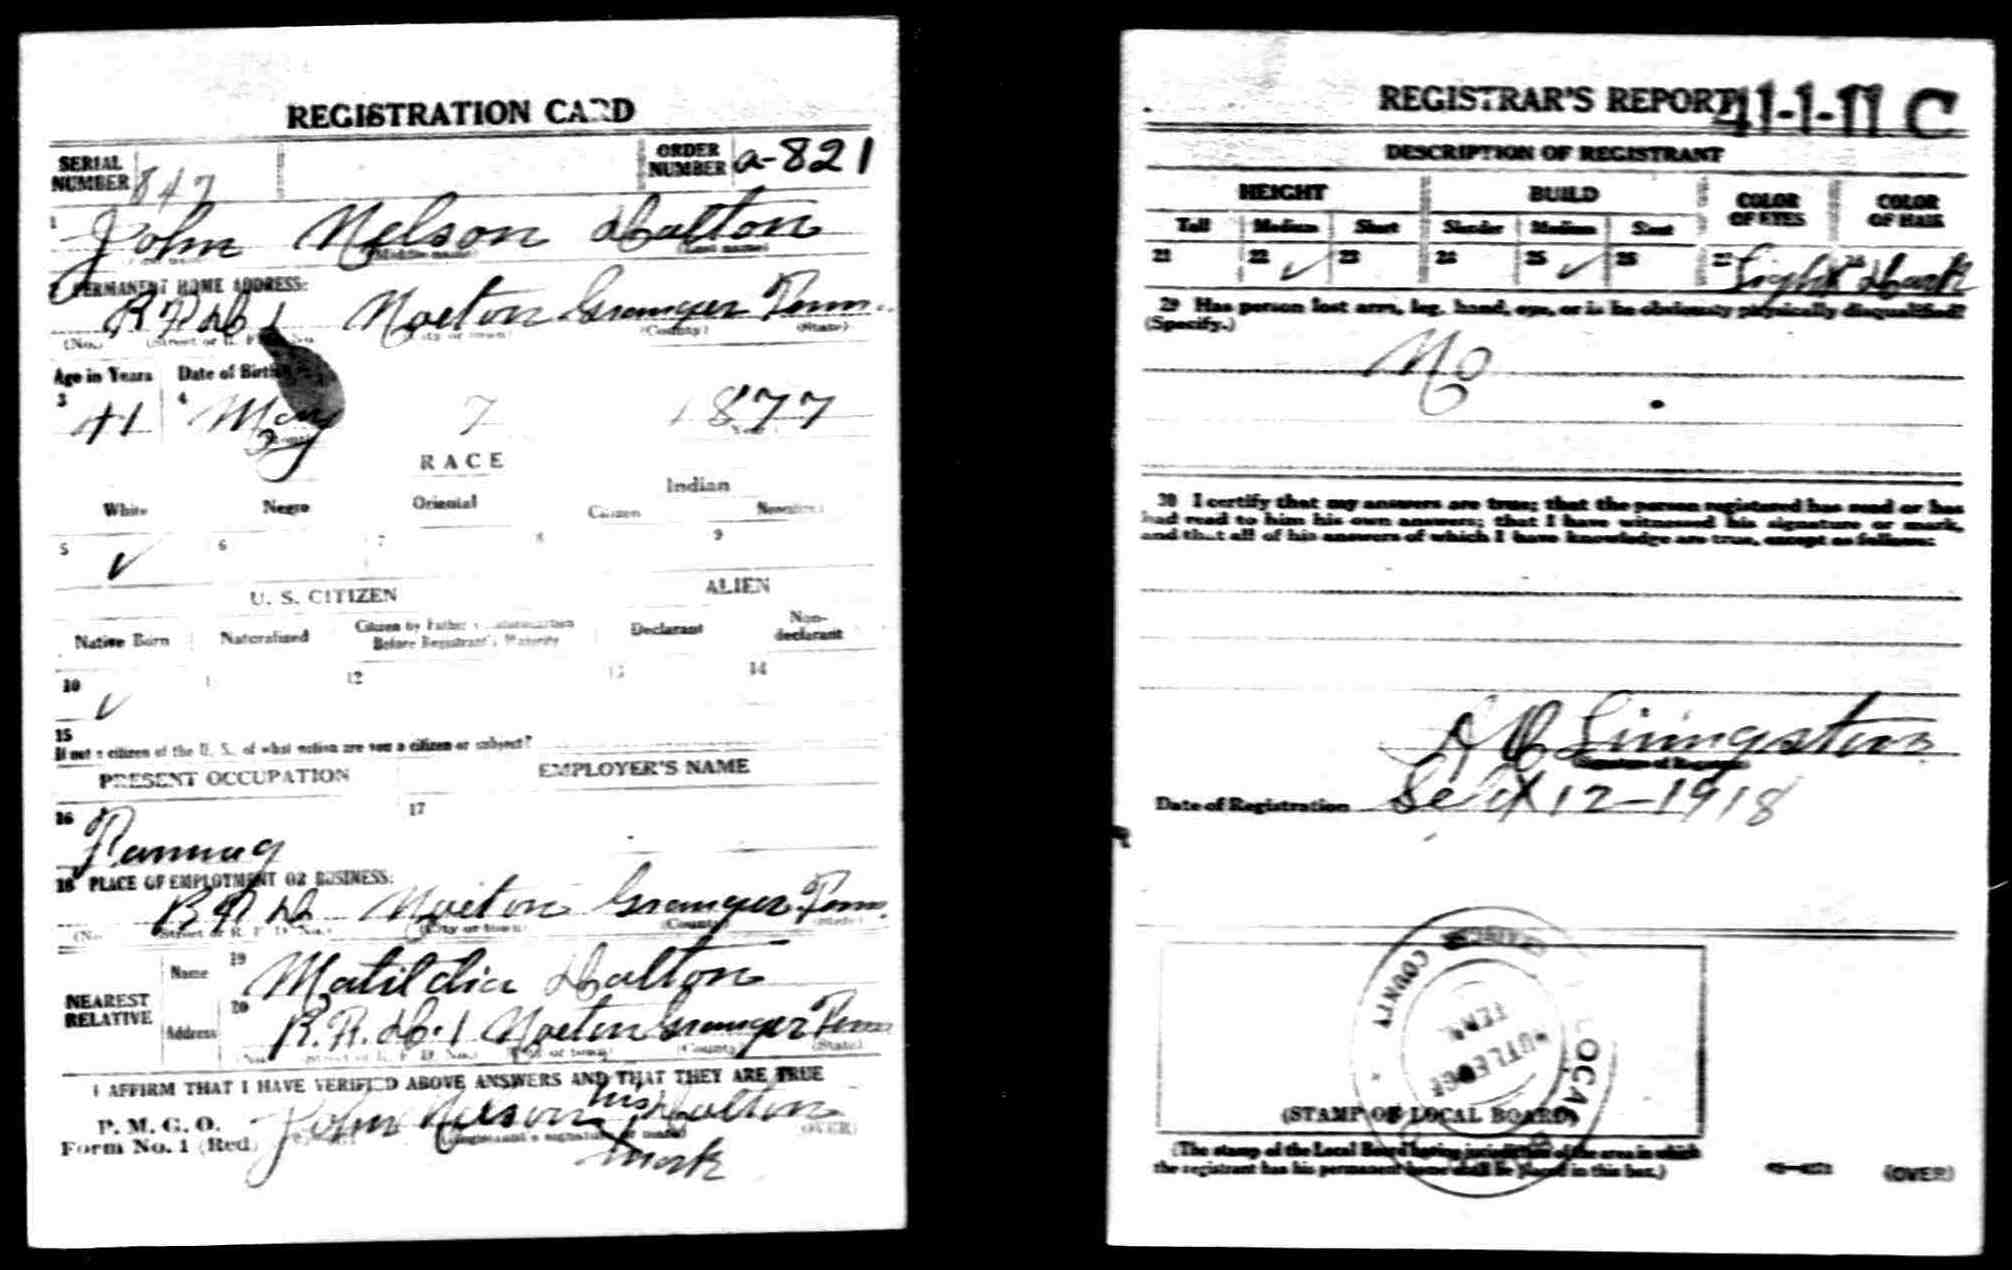 REGISTRATION CARD
SERIAL NUMBER 847 ORDER NUMBER a-821
1 John Nelson Dalton
(Middle name) (Last name)
PERMANENT HOME ADDRESS:
R F D 1 Noeton Grainger Tenn.
(No.) (Street or R. F. D. No.) (City or town) (County) (State)
Age in Years Date of Birth
3 41 4 May 7 1877
RACE
White Negro Oriental Indian
Citizen Noncitizen
5 ✓ 6 7 8 9
U. S. CITIZEN ALIEN
Native Born Naturalized Citizen by Father's Naturalization Before Registrant's Majority Declarant Non-declarant
10 ✓ 12 13 14
15
If not a citizen of the U. S., of what nation are you a citizen or subject?
PRESENT OCCUPATION EMPLOYER'S NAME
16 Farming 17
18 PLACE OF EMPLOYMENT OR BUSINESS:
R F D Noeton Grainger Tenn.
(No.) (Street or R. F. D. No.) (City or town) (County) (State)
NEAREST RELATIVE Name 19 Matildia Dalton
Address 20 R.F.D. 1 Noeton Grainger Tenn
(No.) (Street or R. F. D. No.) (City or town) (County) (State)
I AFFIRM THAT I HAVE VERIFIED ABOVE ANSWERS AND THAT THEY ARE TRUE
P. M. G. O.
Form No. 1 (Red) John Nelson his Dalton
(Registrant's signature or mark) (OVER)
X mark
REGISTRAR'S REPORT 41-1-11 C
DESCRIPTION OF REGISTRANT
HEIGHT BUILD COLOR OF EYES COLOR OF HAIR
Tall Medium Short Slender Medium Stout
21 22 ✓ 23 24 25 ✓ 26 27 Light 28 Dark
29 Has person lost arm, leg, hand, eye, or is he obviously physically disqualified?
(Specify.)
No
30 I certify that my answers are true; that the person registered has read or has
had read to him his own answers; that I have witnessed his signature or mark,
and that all of his answers of which I have knowledge are true, except as follows:
Livingston
(Signature of Registrar)
Date of Registration Sept 12-1918
LOCAL
GRAINGER COUNTY
RUTLEDGE
TENN
(STAMP OF LOCAL BOARD)
(The stamp of the Local Board having jurisdiction of the area in which
the registrant has his permanent home shall be placed in this box.)
(OVER)